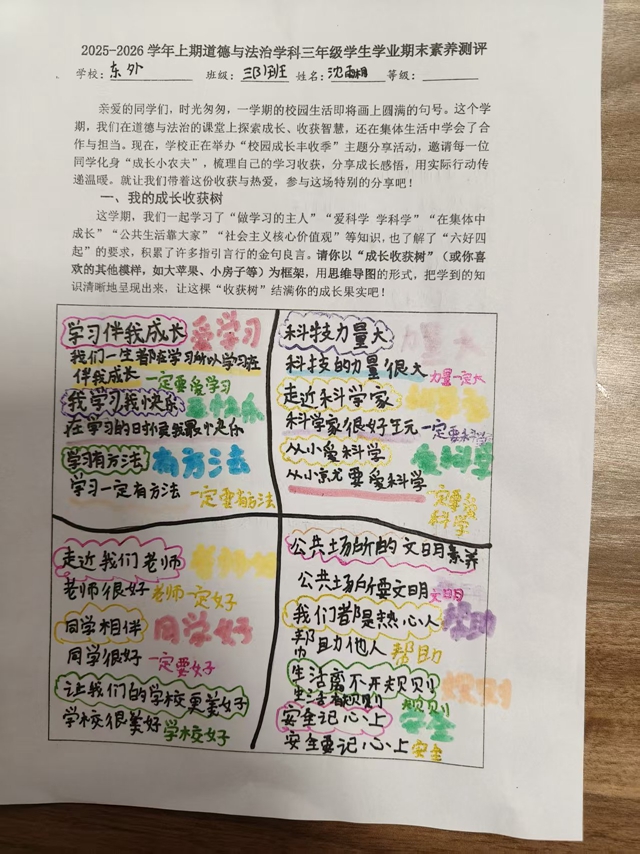 2025-2026学年上期道德与法治学科三年级学生学业期末素养测评
学校：东外 班级：三年 班 姓名： 等级：
亲爱的同学们，时光匆匆，一学期的校园生活即将画上圆满的句号。这个学
期，我们在道德与法治的课堂上探索成长、收获智慧，还在集体生活中学会了合
作与担当。现在，学校正在举办“校园成长丰收季”主题分享活动，邀请每一位
同学化身“成长小农夫”，梳理自己的学习收获，分享成长感悟，用实际行动传
递温暖。就让我们带着这份收获与热爱，参与这场特别的分享吧！
一、我的成长收获树
这学期，我们一起学习了“做学习的主人”“爱科学 学科学”“在集体中
成长”“公共生活靠大家”“社会主义核心价值观”等知识，也了解了“六好四
起”的要求，积累了许多指引言行的金句良言。请你以“成长收获树”（或你喜
欢的其他模样，如大苹果、小房子等）为框架，用思维导图的形式，把学到的知
识清晰地呈现出来，让这棵“收获树”结满你的成长果实吧！
学习伴我成长 爱学习
我们一生都在学习所以学习在
伴我成长 一定要爱学习
我学习我快乐
在学习的日 我最快乐
学习有方法 有方法
学习一定有方法 一定要有方法
科技力量大 力量大
科技的力量很大 力量一定大
走近科学家
科学家很好 一定要科学
从小爱科学 爱科学
从小就要爱科学 一定要爱
科学
走近我们老师
老师很好 老师一定好
同学相伴 同学好
同学很好 一定要好
让我们的学校更美好
学校很美好 学校好
公共场所的文明素养
公共场所要文明 文明
我们都是热心人 帮助
帮助他人 帮助
生活离不开规则 规则
生活有规则 规则
安全记心上 安全
安全要记心上 安全